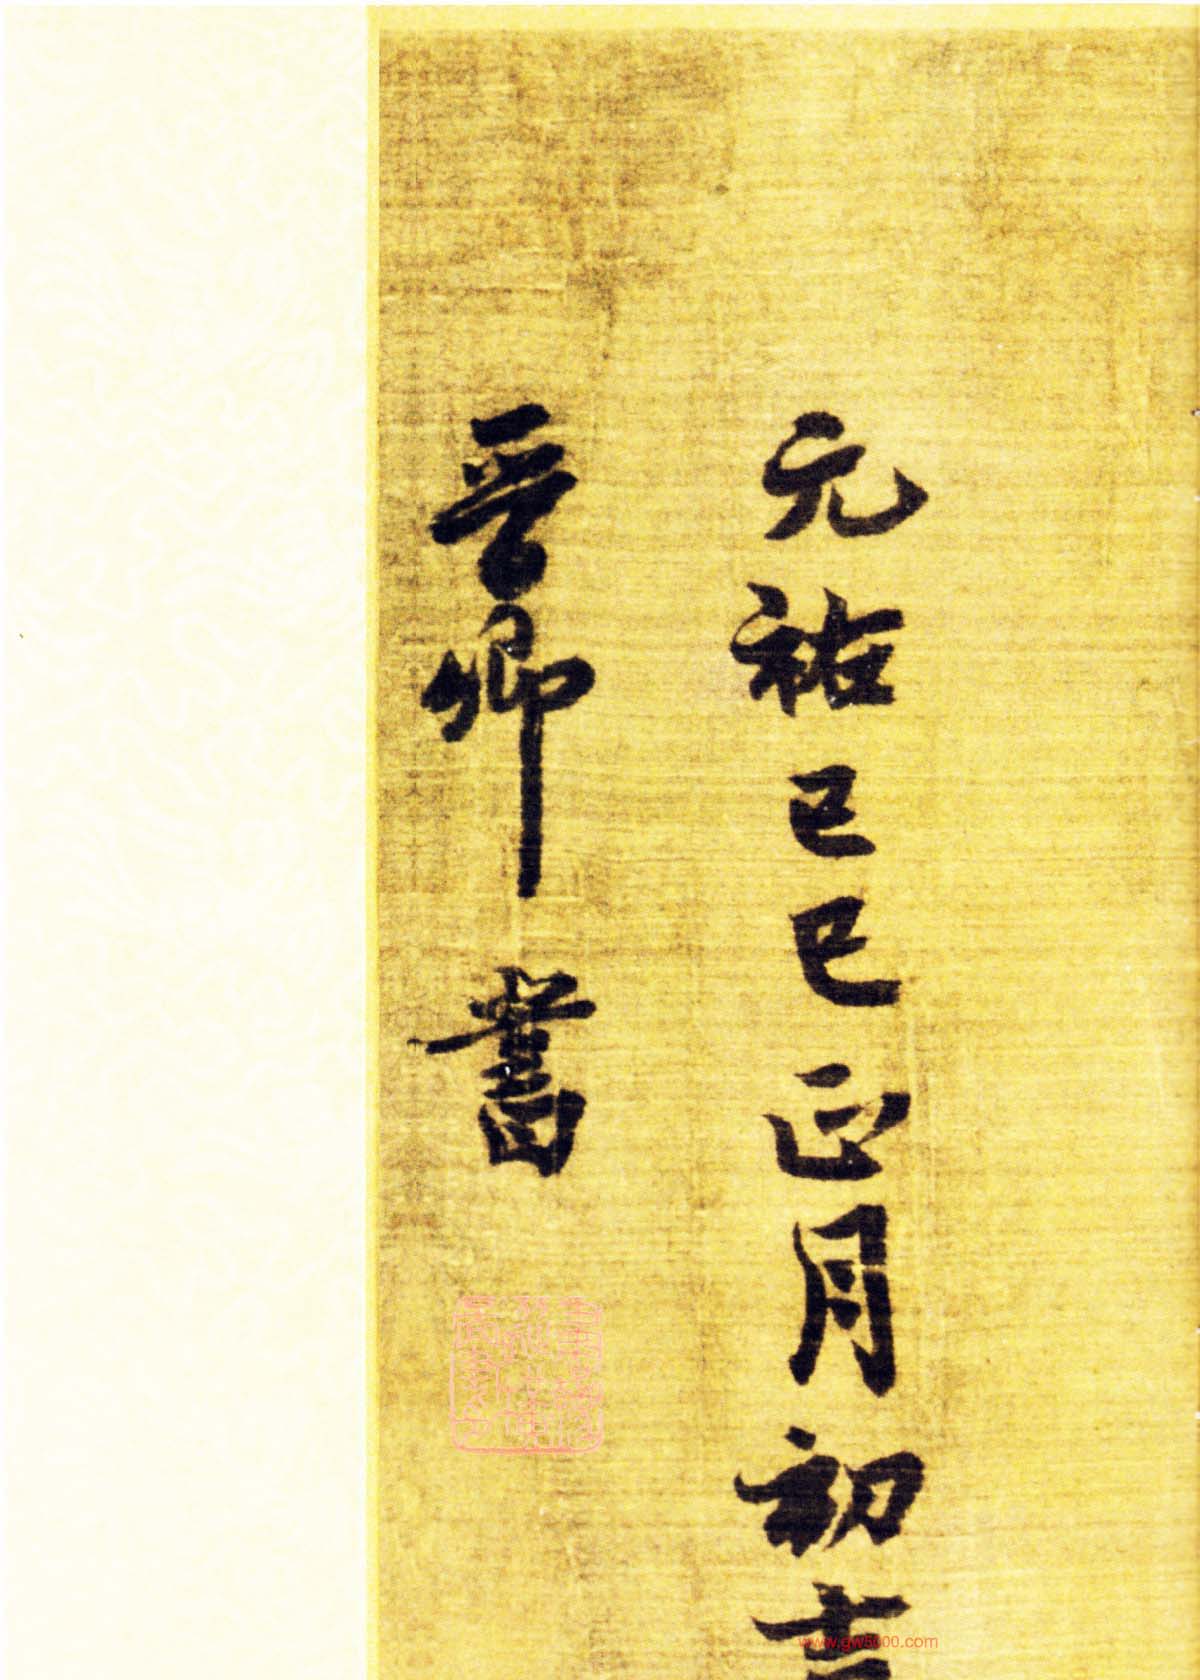 元祐己巳正月初吉
晉卿書
www.gw5000.com